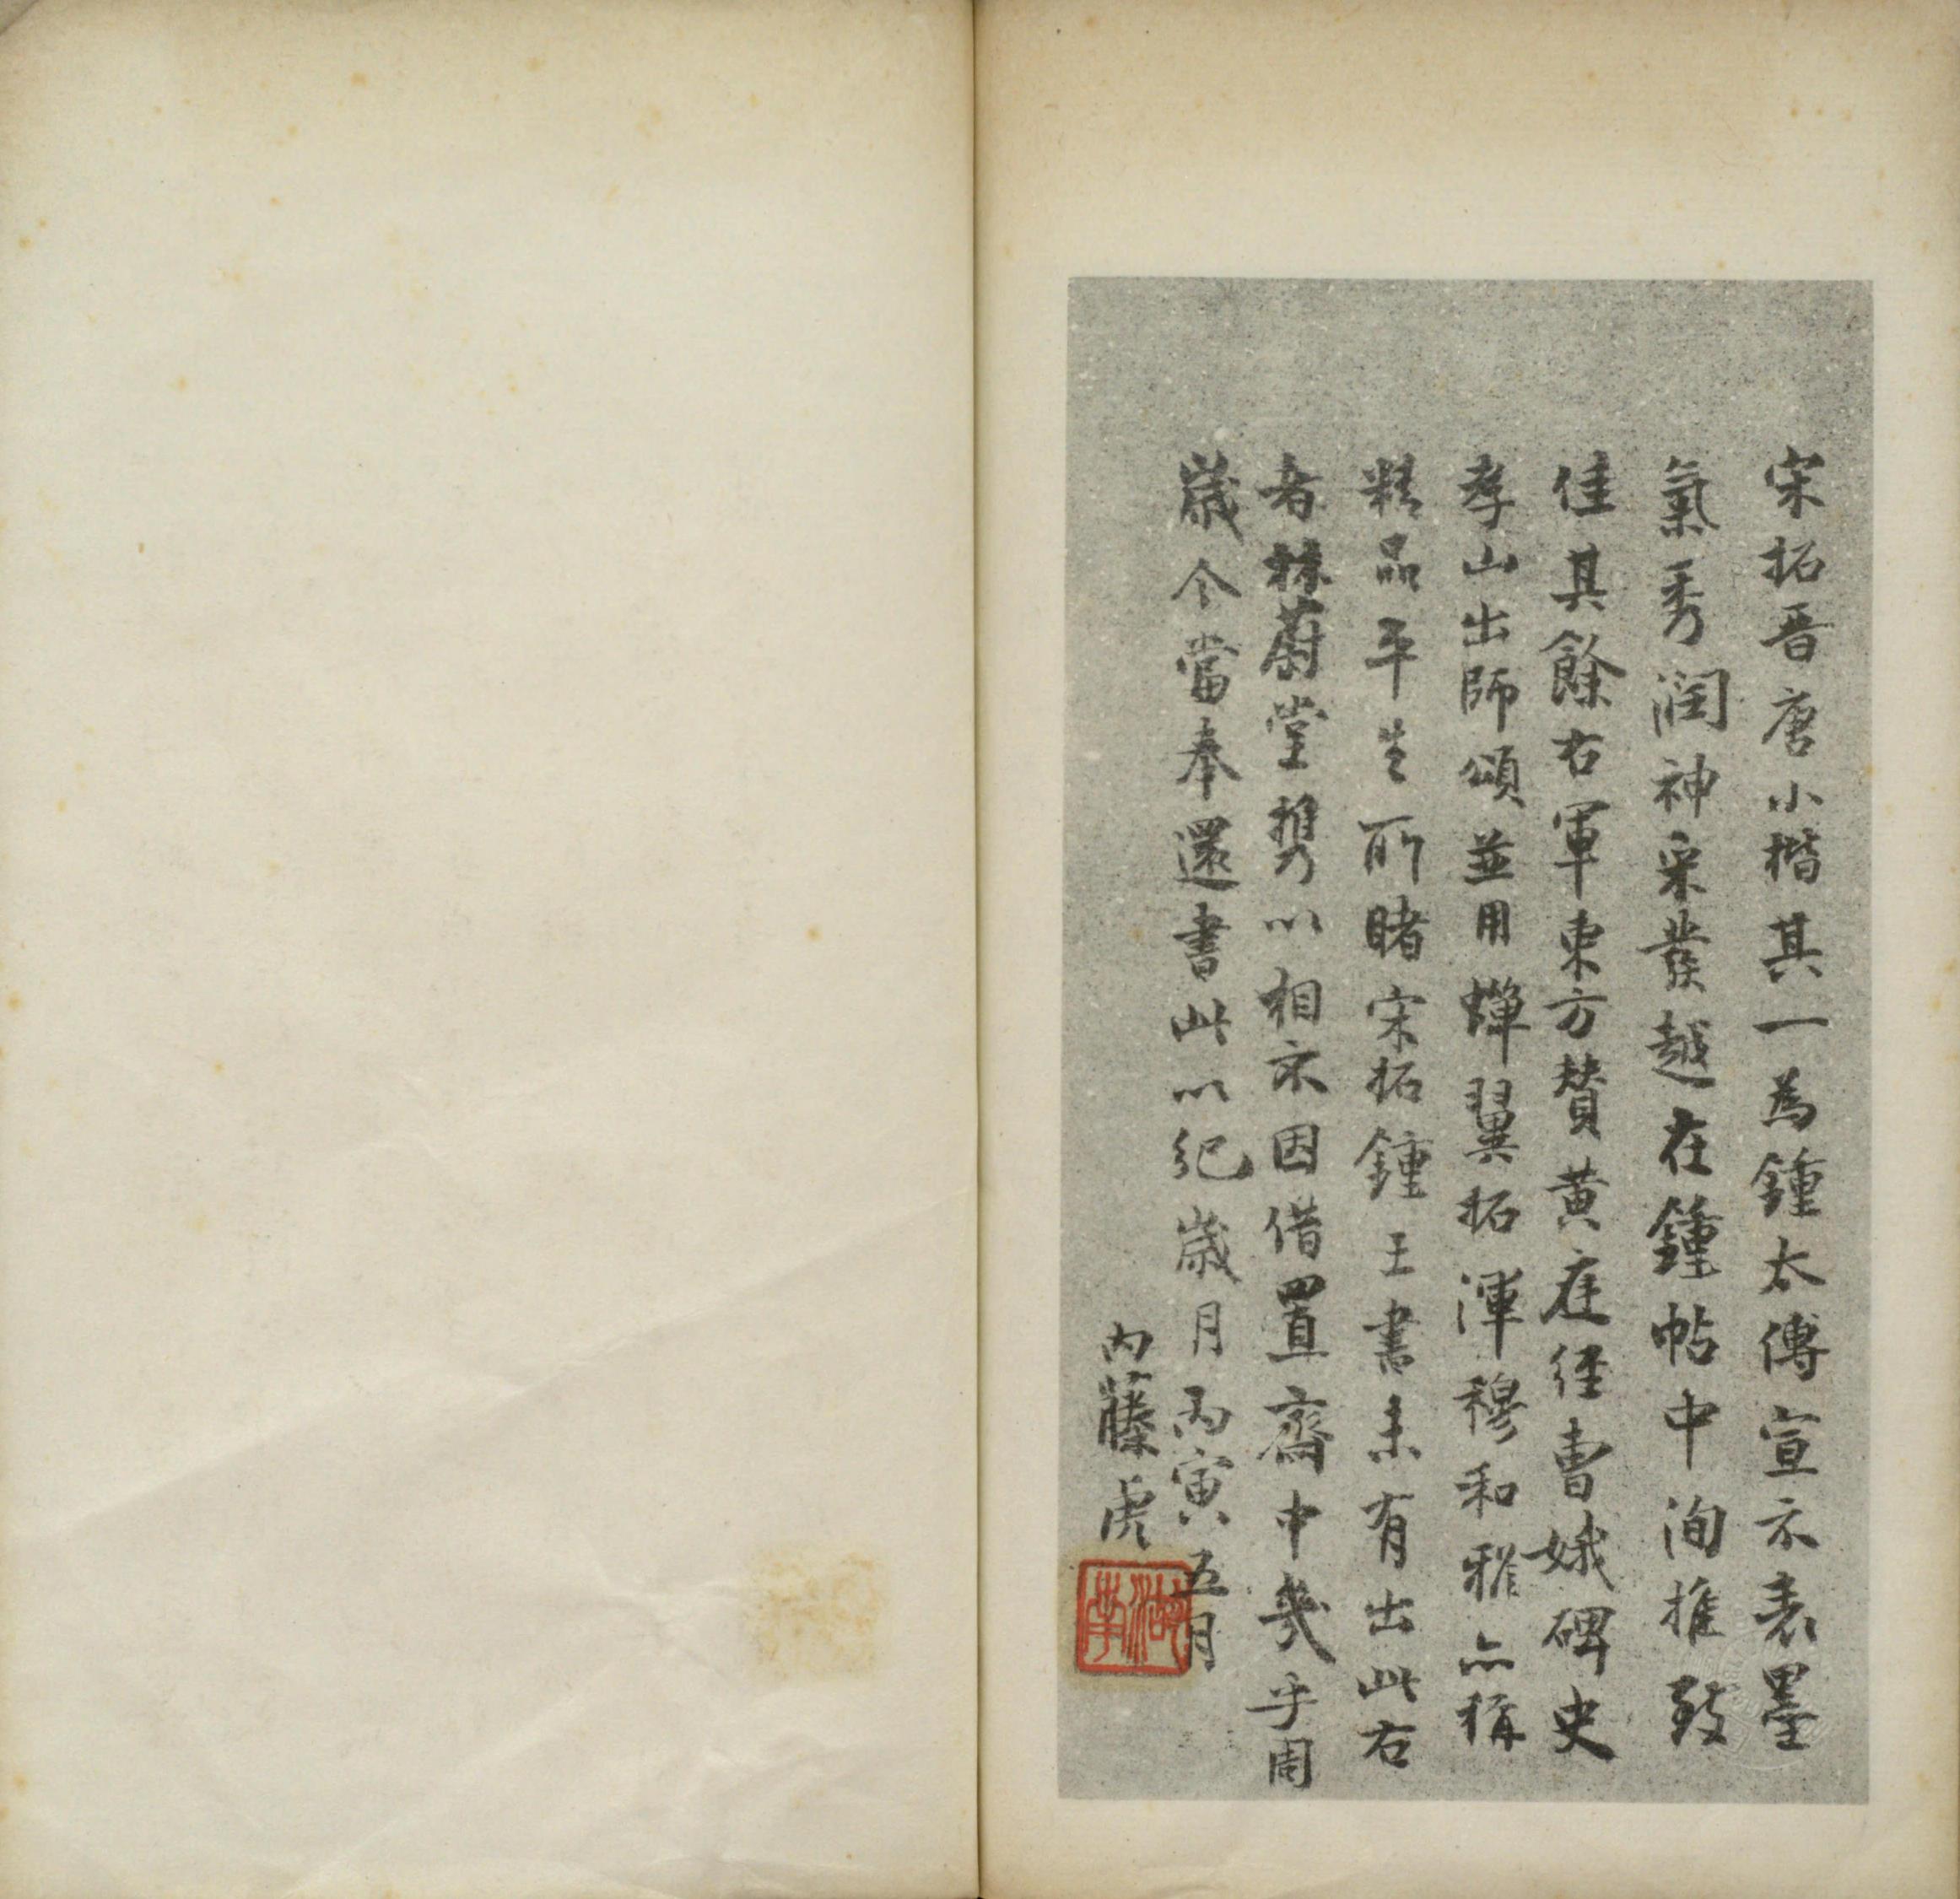 宋拓晋唐小楷其一為鍾太傅宣示表墨
氣秀潤神采發越在鍾帖中洵推致
佳其餘右軍東方贊黄庭經曹娥碑史
孝山出師頌並用蟬翼拓渾穆和雅亦稱
精品平生所睹宋拓鍾王書未有出此右
者林蔚堂携以相示因借置齋中幾乎周
歲今當奉還書此以紀歲月丙寅五月
内藤虎
湖南